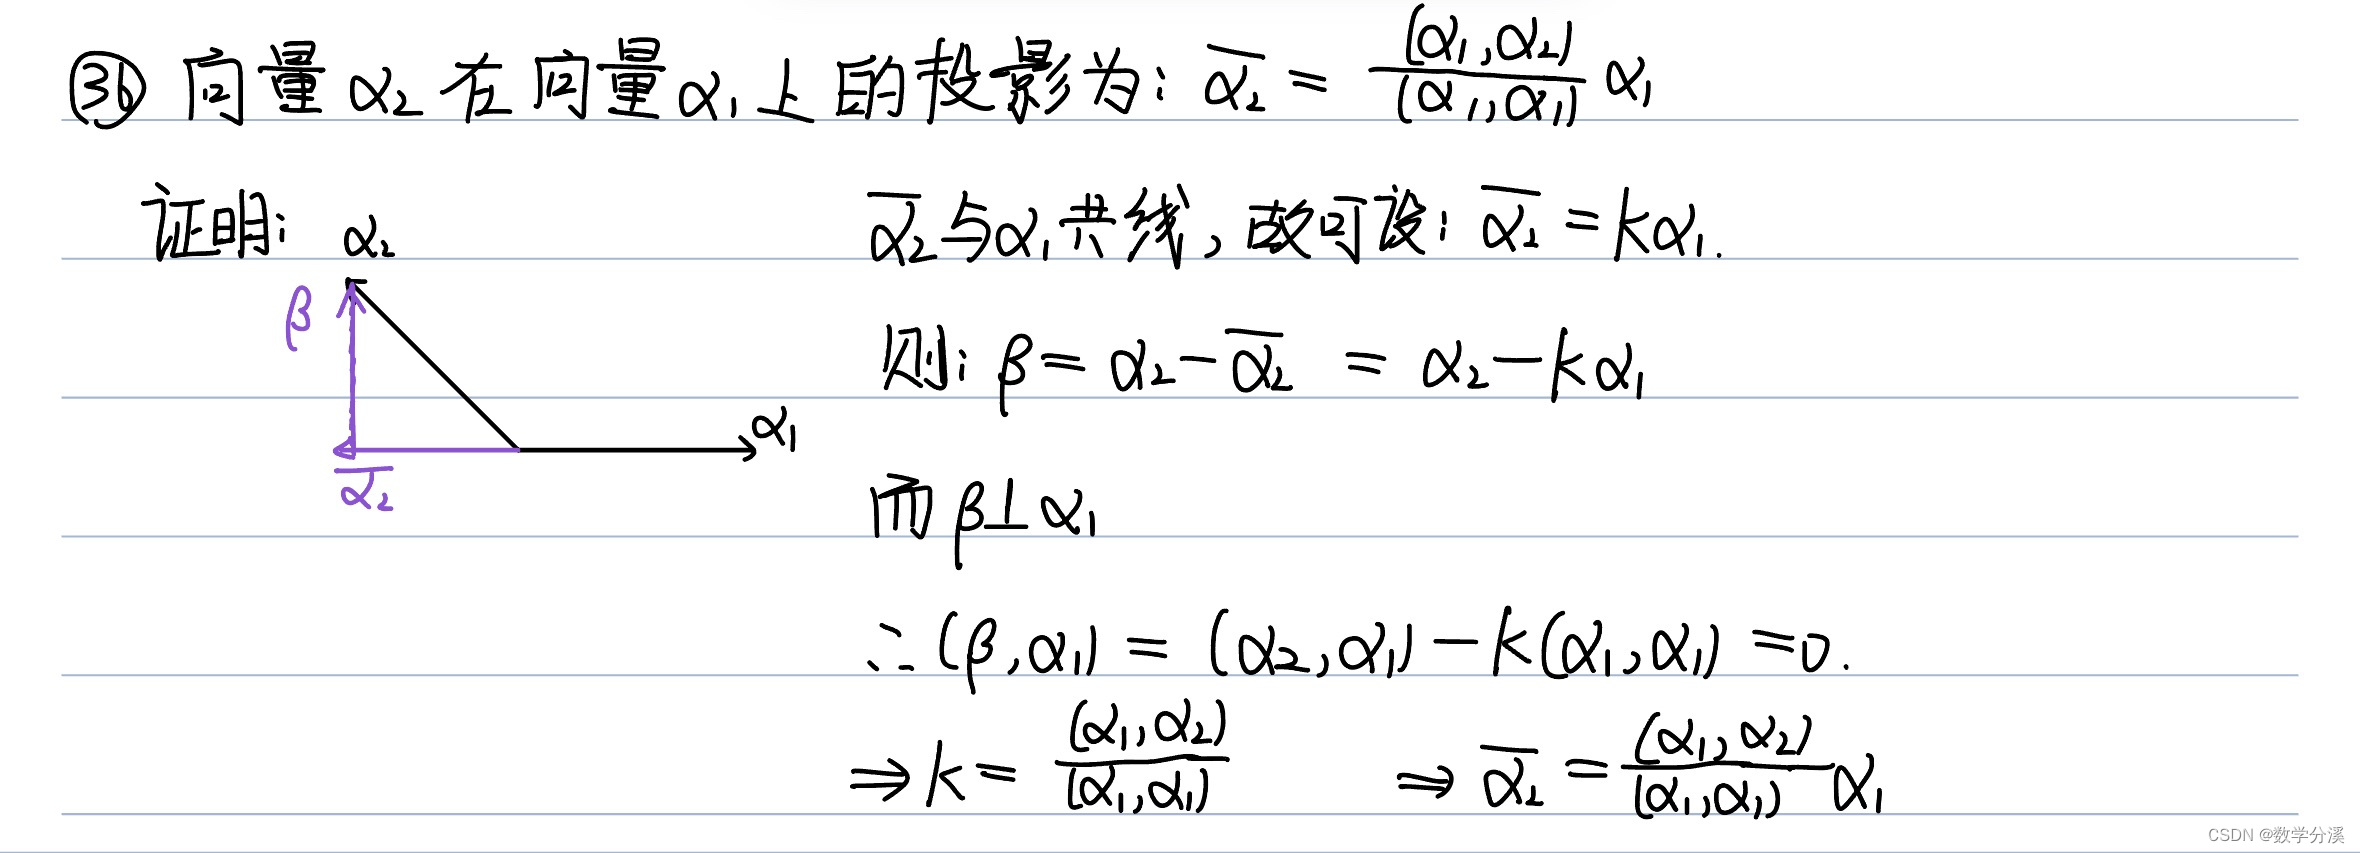 ㊱ 向量 α₂ 在向量 α₁ 上的投影为: \overline{α₂} = \frac{(α₁,α₂)}{(α₁,α₁)} α₁
证明:
α₂
β
α₁
\overline{α₂}
\overline{α₂} 与 α₁ 共线, 故可设: \overline{α₂} = kα₁.
则: β = α₂ - \overline{α₂} = α₂ - kα₁
而 β⊥α₁
∴ (β,α₁) = (α₂,α₁) - k(α₁,α₁) = 0.
⇒ k = \frac{(α₁,α₂)}{(α₁,α₁)} ⇒ \overline{α₂} = \frac{(α₁,α₂)}{(α₁,α₁)} α₁
CSDN @数学分溪